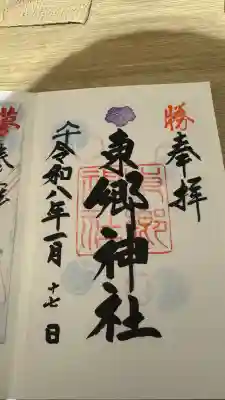 勝
奉拝
東郷神社
令和八年一月十七日
夢